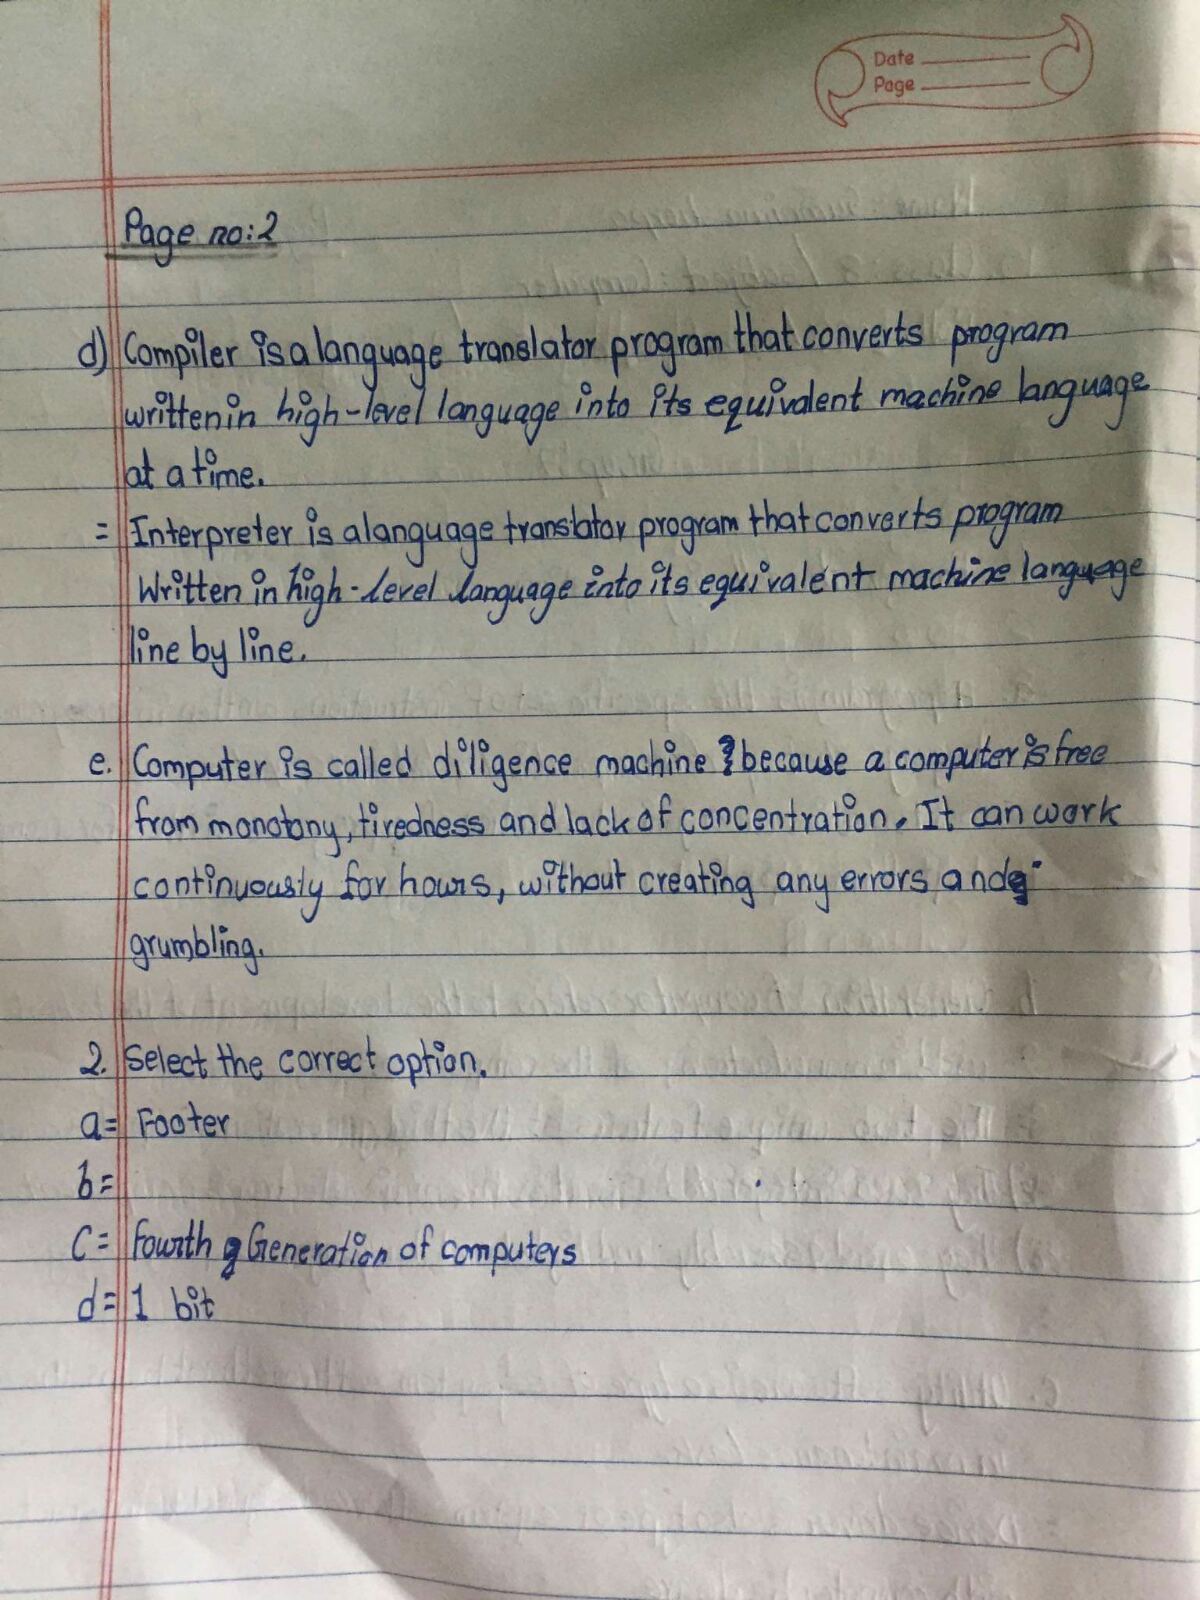 Date
Page
Page no:2
d) Compiler is a language translator program that converts program
written in high-level language into its equivalent machine language
at a time.
= Interpreter is a language translator program that converts program
Written in high-level language into its equivalent machine language
line by line.
e. Computer is called diligence machine because a computer is free
from monotony, tiredness and lack of concentration. It can work
continuously for hours, without creating any errors and
grumbling.
2. Select the correct option.
a= Footer
b=
C= Fourth Generation of computers
d= 1 bit